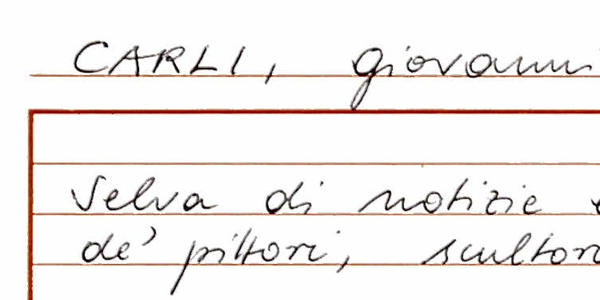 CARLI, Giovanni
Selva di notizie
de' pittori, scultori